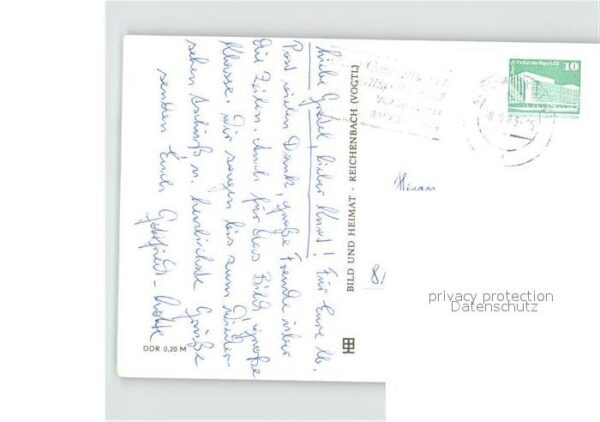 Liebe Gretel, lieber Kurt! Für Eure lb.
Post vielen Dank, große Freude über
die Zeilen. Auch für das Bild große
Klasse. Wir sagen bis zum Wieder-
sehen Tschüß u. herzlichste Grüße
senden Euch Gottfried - Lotte
BILD UND HEIMAT · REICHENBACH (VOGTL)
DDR 0,20 M
10
Herrn
8/
privacy protection
Datenschutz